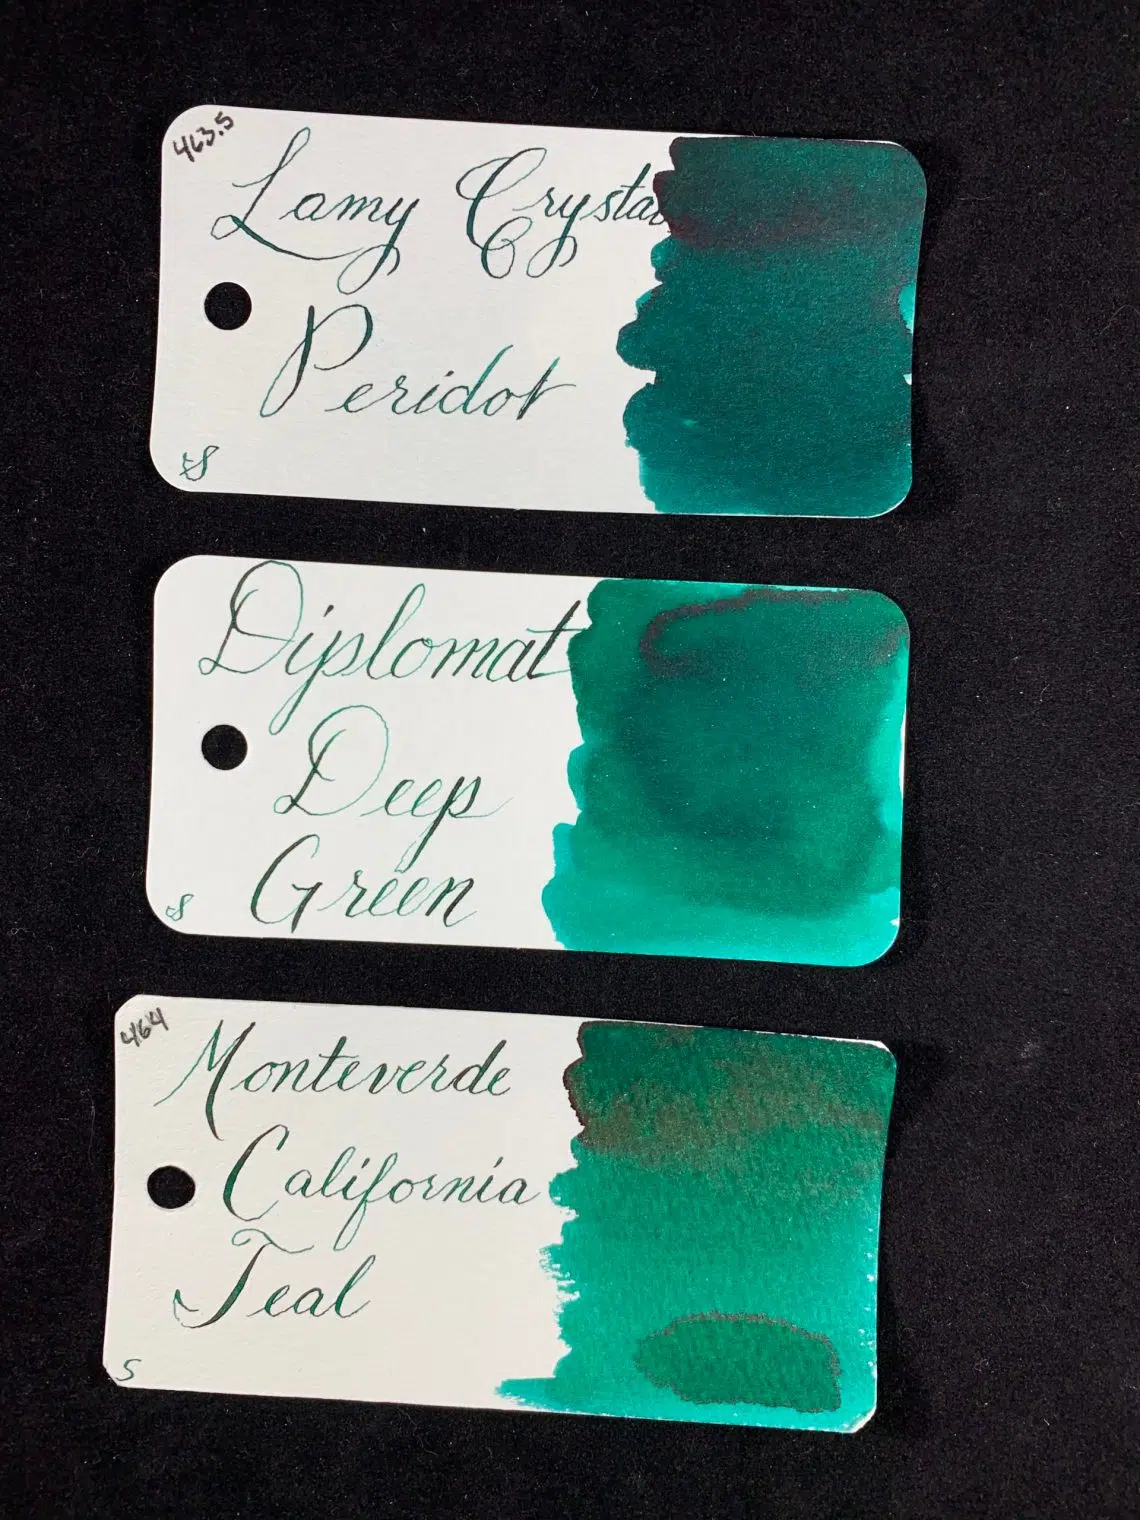 463.5
Lamy Crystal
Peridot
S
Diplomat
Deep
Green
S
464
Monteverde
California
Teal
S